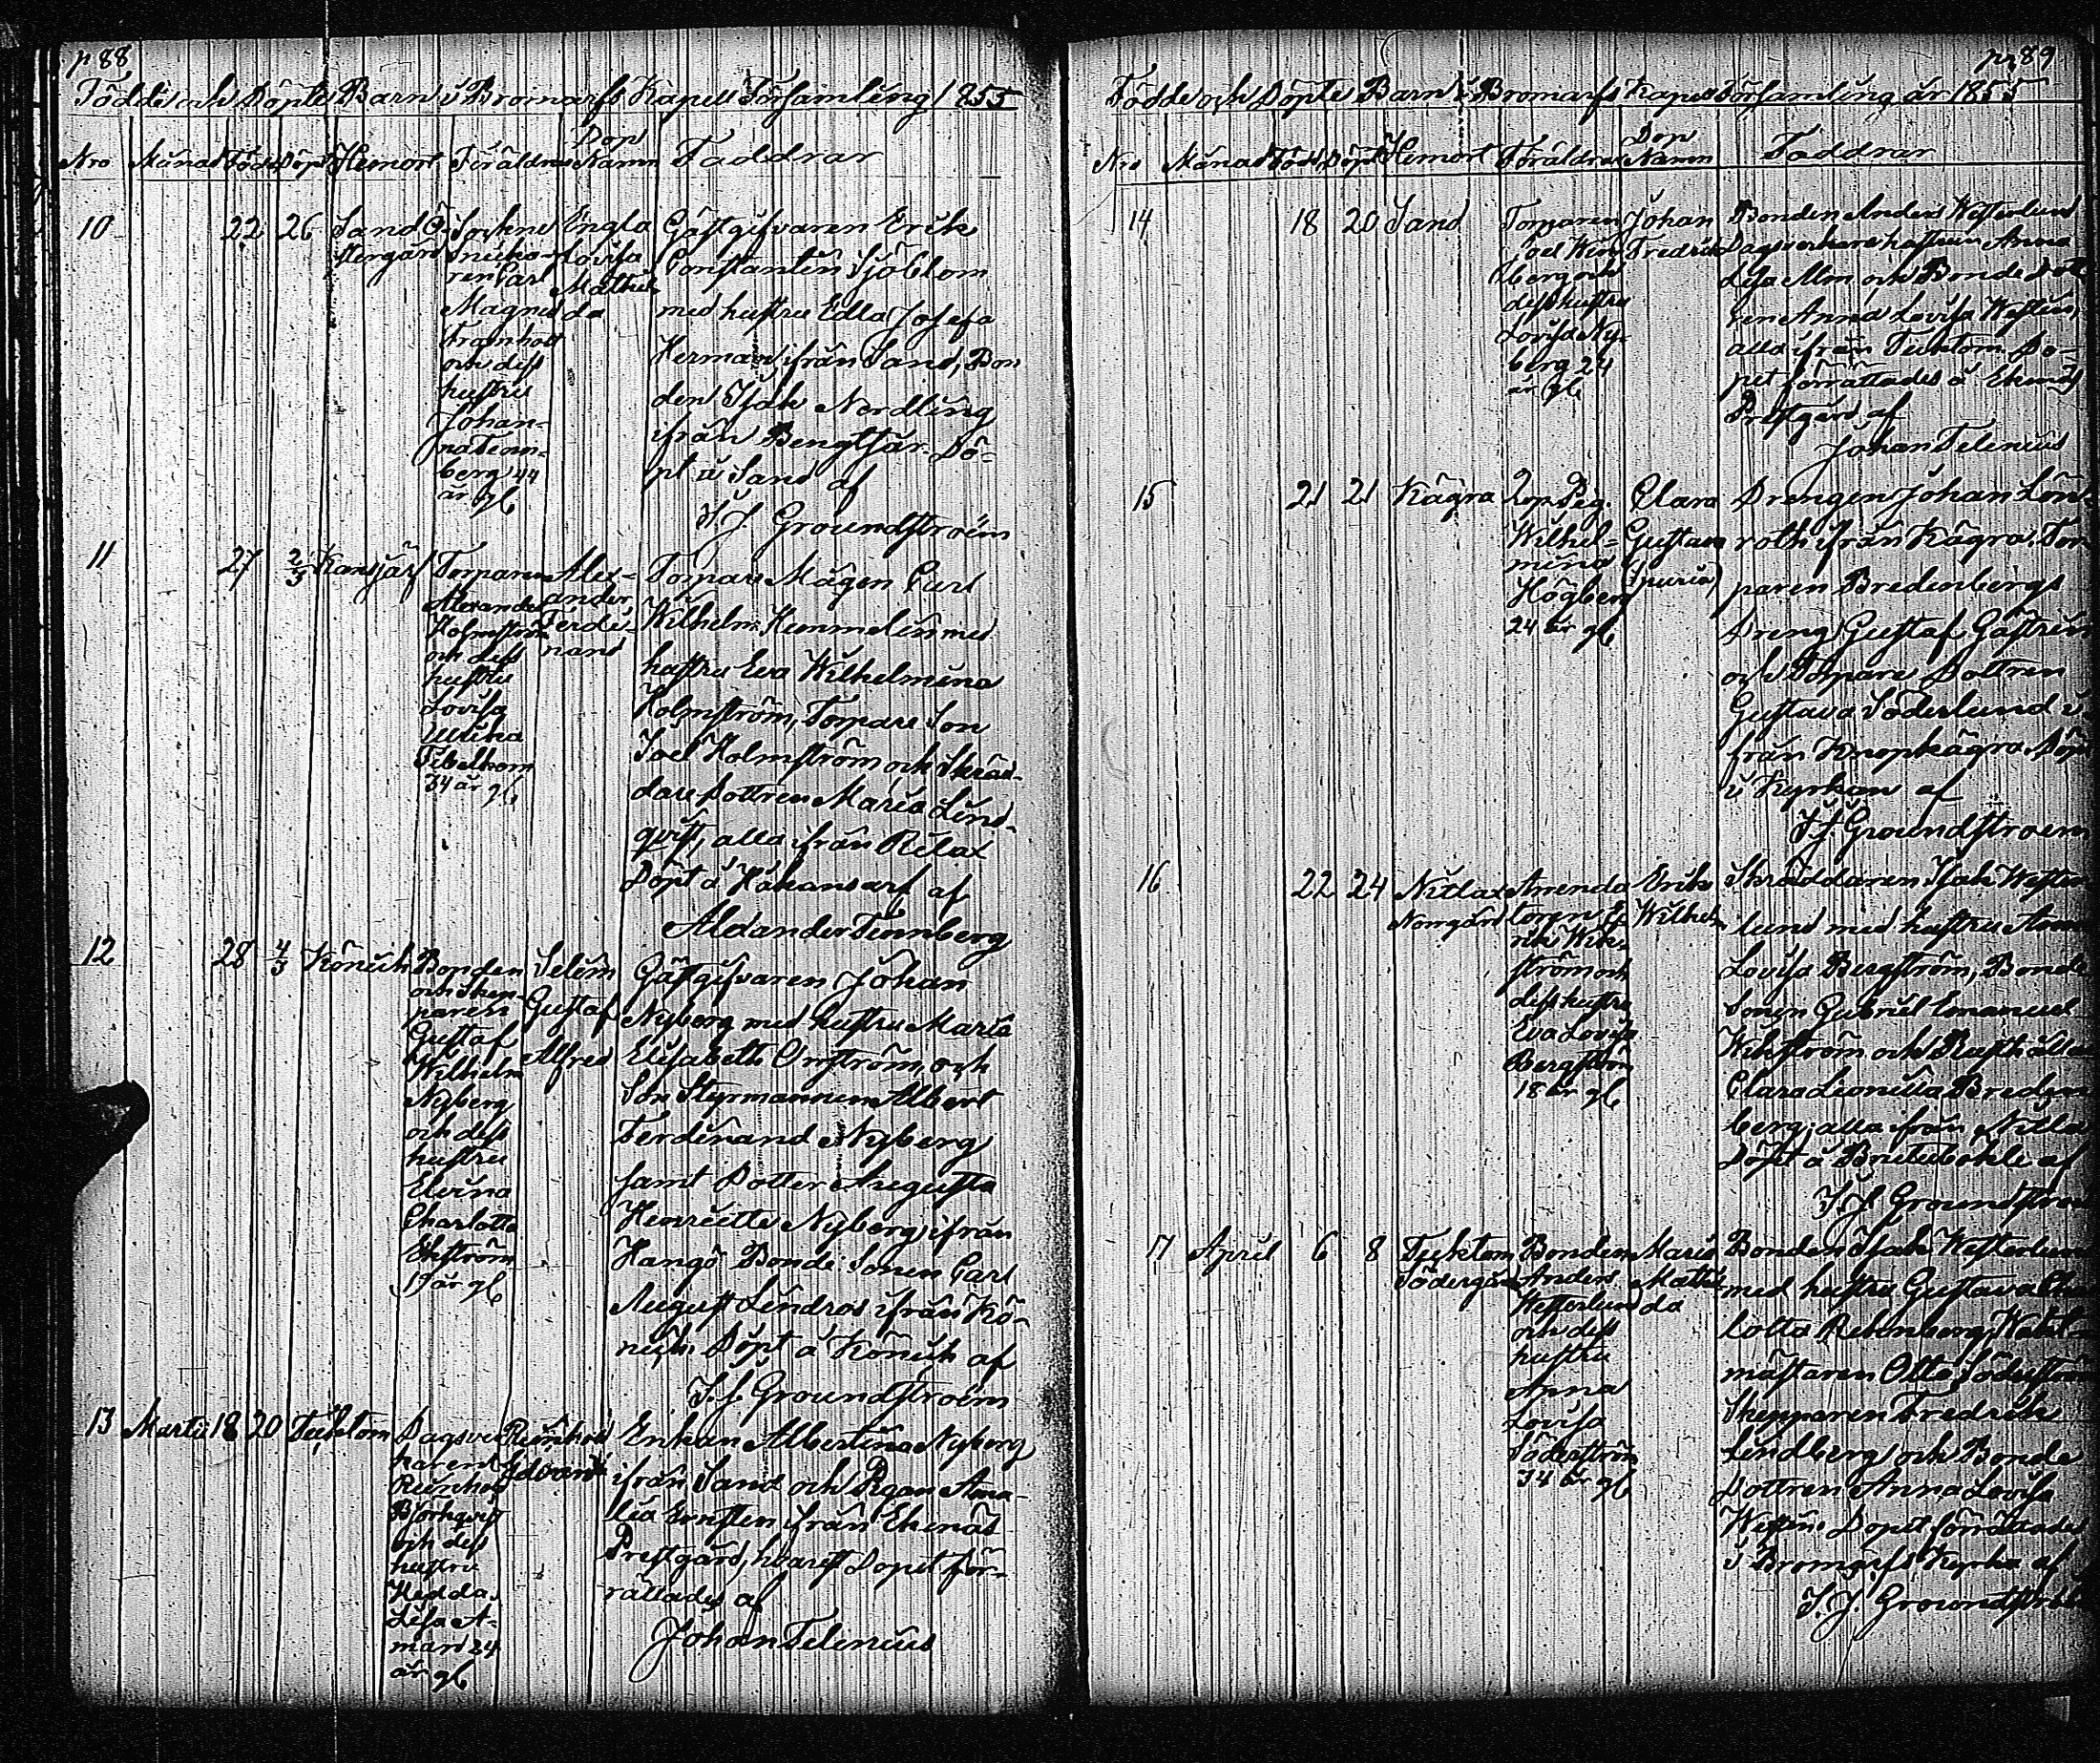 p 88
Födde och Döpte Barn i Bromarfs Kapell Församling 1855
Nro Månad Född Döpt Hemort Föräldrar Dop Namn Faddrar
10 22 26 Sand Ö
stergård
Sockne
snicka-
ren Carl
Magnus
Framholt
och dess
hustru
Johan-
na Tenn-
berg 44
år gl
Engla
Lovisa
Mathil
da
Gästgifvaren Erik
Constantin Sjöblom
med hustru Edla Josefa
Herman, ifrån Sand, Bon
den Isak Nordling
ifrån Bengtsår. Dö-
pt i Sand af
I. J. Groundstroëm
11 27 2/3 Kansjärf
Torparen
Alexander
Holmström
och dess
hustru
Lovisa
Ulrika
34 år gl
Alex-
ander
Ferdi-
nand
Torpare Mågen Carl
Wilhelm Hemmelin med
hustru Eva Wilhelmina
Holmström, Torpare Son
Joel Holmström och Skräd-
dare Dottren Maria Lind-
qvist, alla ifrån Rilax
Döpt å Håkansarf af
Alexander Tennberg
12 28 4/3 Könick
Bonden
och Skep-
paren
Gustaf
Wilhelm
Nyberg
och dess
hustru
Elvina
Charlotta
Ekström
år gl
Selim
Gustaf
Alfred
Gästgifvaren Johan
Nyberg med hustru Maria
Elisabeth Ornström, och
Son Styrmannen Albert
Ferdinand Nyberg
samt Dotter Augusta
Henriette Nyberg ifrån
Hangö Bonde Sonen Carl
August Lindros ifrån Kö-
nick. Döpt å Könick af
I. J. Groundstroëm
13 Martii 18 20 Tecktom
Dagsver
karen
Reinhold
Björkqvist
och dess
hustru
Hedda
Lisa A-
man 24
år gl
Reinhold
Edvard
Enkan Albertina Nyberg
ifrån Sand och Pigan Ama
lia Ernsten ifrån Ekenäs
Prestgård, hvarest Dopet för-
rättades af
Johan Telenius
p. 89
Födde och Döpte Barn i Bromarfs Kapell Församling år 1855
Nro Månad Född Döpt Hemort Föräldrar Dop Namn Faddrar
14 18 20 Sand
Torparen
Joel Wen
berg och
dess hustru
Lovisa Ny-
berg 24
år gl
Johan
Fredrik
Bonden Anders Westerlund
Dagsverkare hustrun Anna
Lisa Alm och Bonde Dott
ren Anna Lovisa Westin,
alla ifrån Tecktom. Do-
pet förrättades å Ekenäs
Prestgård af
Johan Telenius
15 21 21 Kägra
Pig.
Wilhel-
mina
Högberg
24 år gl
Clara
Gustava
(spuria)
Drengen Johan Lönn
roth ifrån Kägra. Tor
paren Bredenbergs
Dreng Gustaf Gästrin
och Torpare Dottren
Gustava Söderlund i
från Knopkägra. Döpt
i Kyrkan af
I. J. Groundstroem
16 22 24 Nitlax
Norrgård
Arrenda
toren E
rik Wik-
ström och
dess hustru
Eva Lovisa
Bergström
18 år gl
Erik
Wilhelm
Skräddaren Isak Wester
lund med hustru Anna
Lovisa Bergström, Bonde
Sonen Gabriel Emanuel
Wikström och
Clara Leontina Breden
berg, alla ifrån Nitla
Döpt å af
I. J. Groundstroe
17 April 6 8 Tecktom
Södergård
Bonden
Anders
Westerlund
och dess
hustru
Anna
Lovisa
Söderström
34 år gl
Maria
Mathil
da
Bonden Isak Westerlund
med hustru Gustava Cha
lotta Rehnberg,
mästaren Otto Söderström
Skepparen Fredrik
Lindberg och Bonde
Dottren Anna Lovisa
Westin. Dopet förrättades
i Bromarfs Kyrka af
I. J. Groundstroe